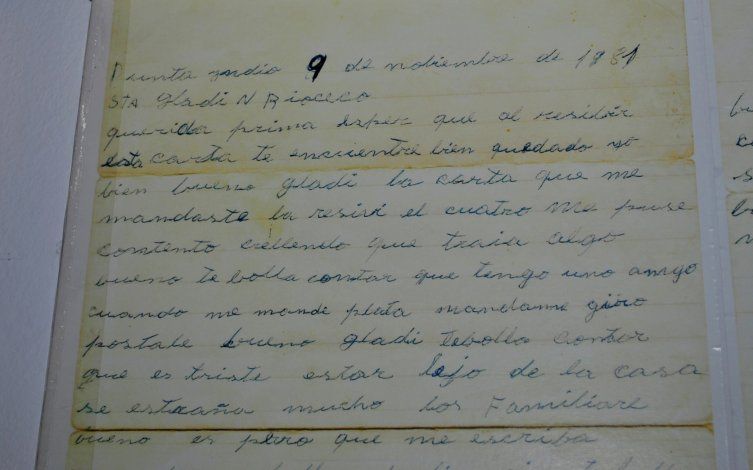 Punta yndio 9 de nobiembre de 1981
STA gladi N Rioceco
querida prima esper que al residir
esta carta te encuentre bien quedado yo
bien bueno gladi la carta que me
mandaste la resivi el cuatro me puse
contento crellendo que traia algo
bueno te bolla contar que tengo uno amigo
cuando me mande plata mandame giro
postale bueno gladi tebolla contar
que es triste estar lejo de la casa
se estraña mucho los Familiare
bueno es pero que me escriba